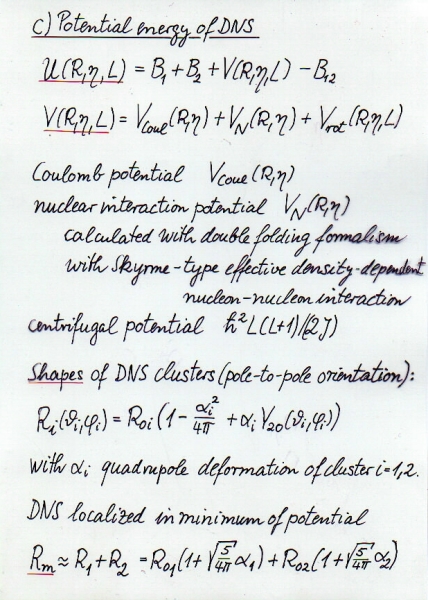 c) Potential energy of DNS
U(R,η,L) = B₁ + B₂ + V(R,η,L) − B₁₂
V(R,η,L) = V_Coul(R,η) + V_N(R,η) + V_rot(R,η,L)
Coulomb potential V_Coul(R,η)
nuclear interaction potential V_N(R,η)
calculated with double folding formalism
with Skyrme-type effective density-dependent
nucleon-nucleon interaction
centrifugal potential ħ²L(L+1)/(2J)
Shapes of DNS clusters (pole-to-pole orientation):
R_i(ϑ_i,φ_i) = R_0i(1 − α_i²/4π + α_i Y₂₀(ϑ_i,φ_i))
with α_i quadrupole deformation of cluster i=1,2.
DNS localized in minimum of potential
R_m ≈ R₁ + R₂ = R₀₁(1+√(5/4π) α₁) + R₀₂(1+√(5/4π) α₂)